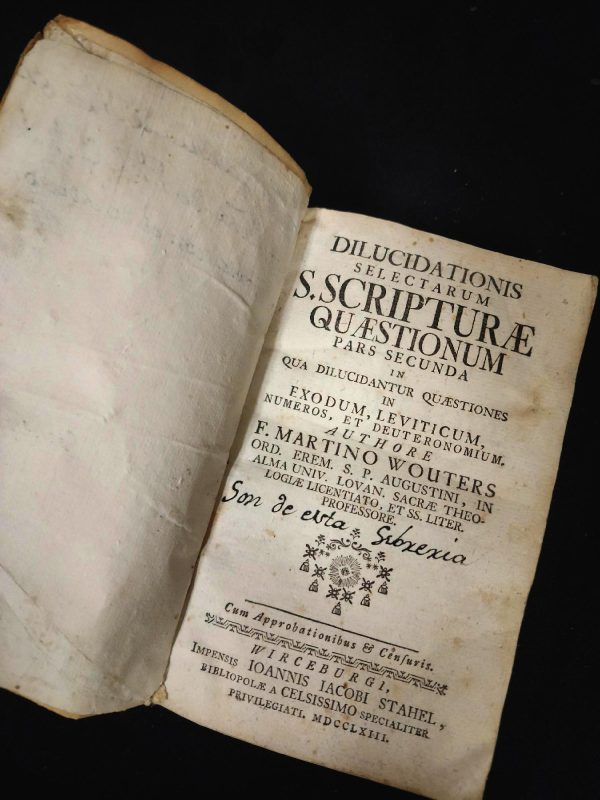 DILUCIDATIONIS
SELECTARUM
S. SCRIPTURÆ
QUÆSTIONUM
PARS SECUNDA
IN
QUA DILUCIDANTUR QUÆSTIONES
IN
EXODUM, LEVITICUM,
NUMEROS, ET DEUTERONOMIUM.
AUTHORE
F. MARTINO WOUTERS
ORD. EREM. S. P. AUGUSTINI, IN
ALMA UNIV. LOVAN. SACRÆ THEO-
LOGIÆ LICENTIATO, ET SS. LITER.
PROFESSORE.
Son de esta Librexia
Cum Approbationibus & Censuris.
WIRCEBURGI,
IMPENSIS IOANNIS IACOBI STAHEL,
BIBLIOPOLÆ A CELSISSIMO SPECIALITER
PRIVILEGIATI. MDCCLXIII.